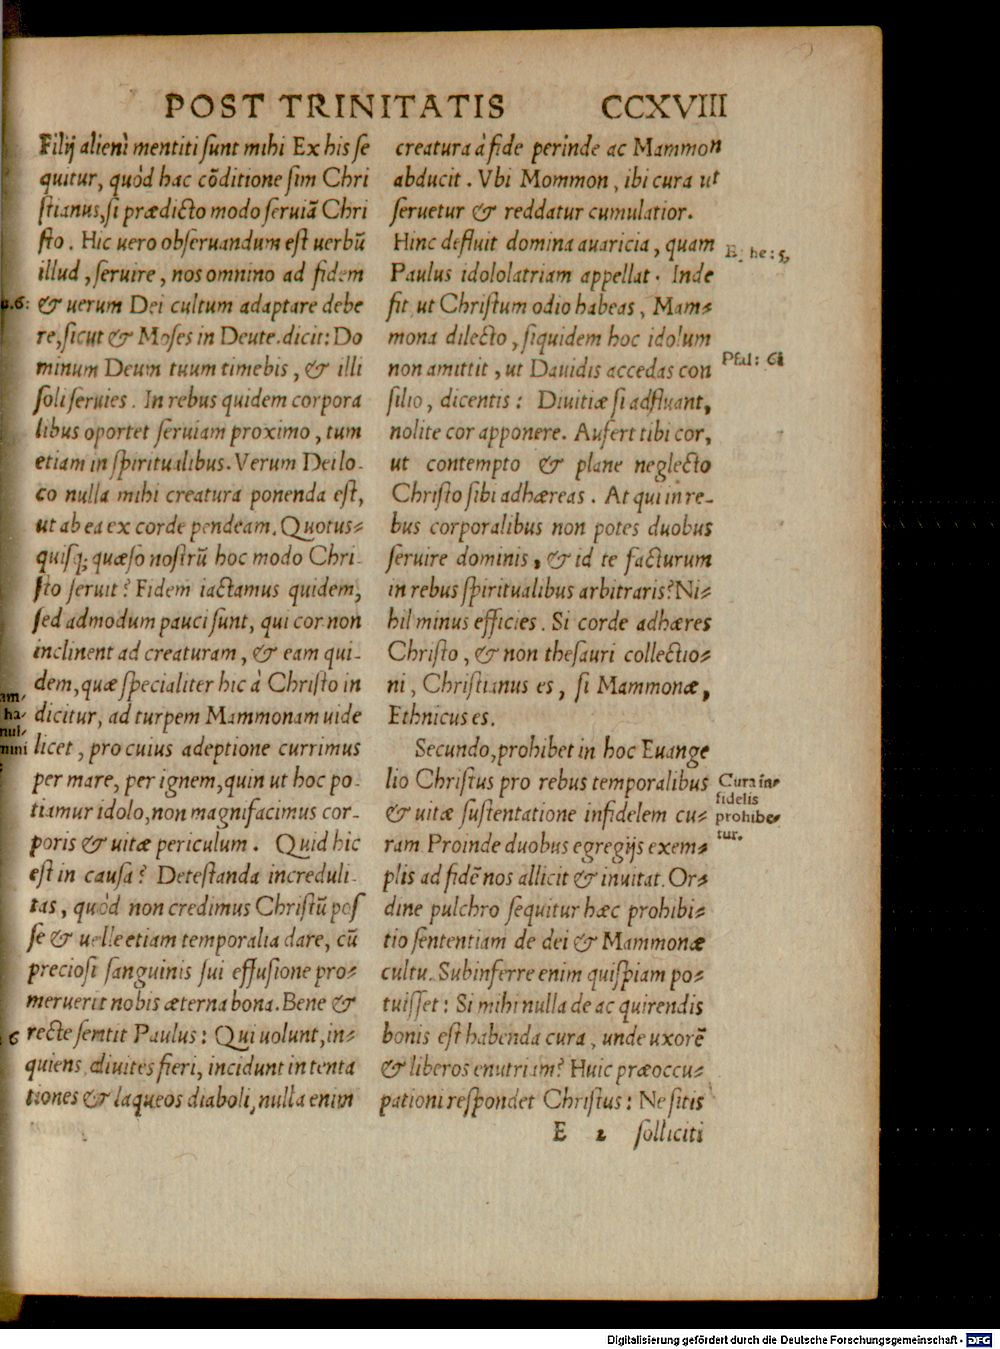 POST TRINITATIS CCXVIII
Filij alieni mentiti sunt mihi Ex his se
quitur, quòd hac cōditione sim Chri
stianus, si prædicto modo seruiā Chri
sto. Hic uero obseruandum est uerbū
illud, seruire, nos omnino ad fidem
& uerum Dei cultum adaptare debe
re, sicut & Moses in Deute. dicit: Do
minum Deum tuum timebis, & illi
soli seruies. In rebus quidem corpora
libus oportet seruiam proximo, tum
etiam in spiritualibus. Verum Dei lo-
co nulla mihi creatura ponenda est,
ut ab ea ex corde pendeam. Quotus-
quisq; quæso nostrū hoc modo Chri-
sto seruit? Fidem iactamus quidem,
sed admodum pauci sunt, qui cor non
inclinent ad creaturam, & eam qui-
dem, quæ specialiter hic à Christo in
dicitur, ad turpem Mammonam uide
licet, pro cuius adeptione currimus
per mare, per ignem, quin ut hoc po-
tiamur idolo, non magnifacimus cor-
poris & uitæ periculum. Quid hic
est in causa? Detestanda increduli-
tas, quòd non credimus Christū pos
se & uelle etiam temporalia dare, cū
preciosi sanguinis sui effusione pro-
meruerit nobis æterna bona. Bene &
recte sentit Paulus: Qui uolunt, in-
quiens, diuites fieri, incidunt in tenta
tiones & laqueos diaboli, nulla enim
u.6:
am-
ha-
nul-
mini
:
6
creatura à fide perinde ac Mammon
abducit. Vbi Mommon, ibi cura ut
seruetur & reddatur cumulatior.
Hinc defluit domina auaricia, quam
Paulus idololatriam appellat. Inde
fit ut Christum odio habeas, Mam-
mona dilecto, siquidem hoc idolum
non amittit, ut Dauidis accedas con
silio, dicentis: Diuitiæ si adfluant,
nolite cor apponere. Aufert tibi cor,
ut contempto & plane neglecto
Christo sibi adhæreas. At qui in re-
bus corporalibus non potes duobus
seruire dominis, & id te facturum
in rebus spiritualibus arbitraris? Ni-
hil minus efficies. Si corde adhæres
Christo, & non thesauri collectio-
ni, Christianus es, si Mammonæ,
Ethnicus es.
Secundo, prohibet in hoc Euange
lio Christus pro rebus temporalibus
& uitæ sustentatione infidelem cu-
ram Proinde duobus egregijs exem-
plis ad fidē nos allicit & inuitat. Or-
dine pulchro sequitur hæc prohibi-
tio sententiam de dei & Mammonæ
cultu. Subinferre enim quispiam po-
tuisset: Si mihi nulla de ac quirendis
bonis est habenda cura, unde uxorē
& liberos enutriam? Huic præoccu-
pationi respondet Christus: Ne sitis
E 2 solliciti
Ephe: 5,
Psal: 61
Cura in-
fidelis
prohibe-
tur.
Digitalisierung gefördert durch die Deutsche Forschungsgemeinschaft - DFG